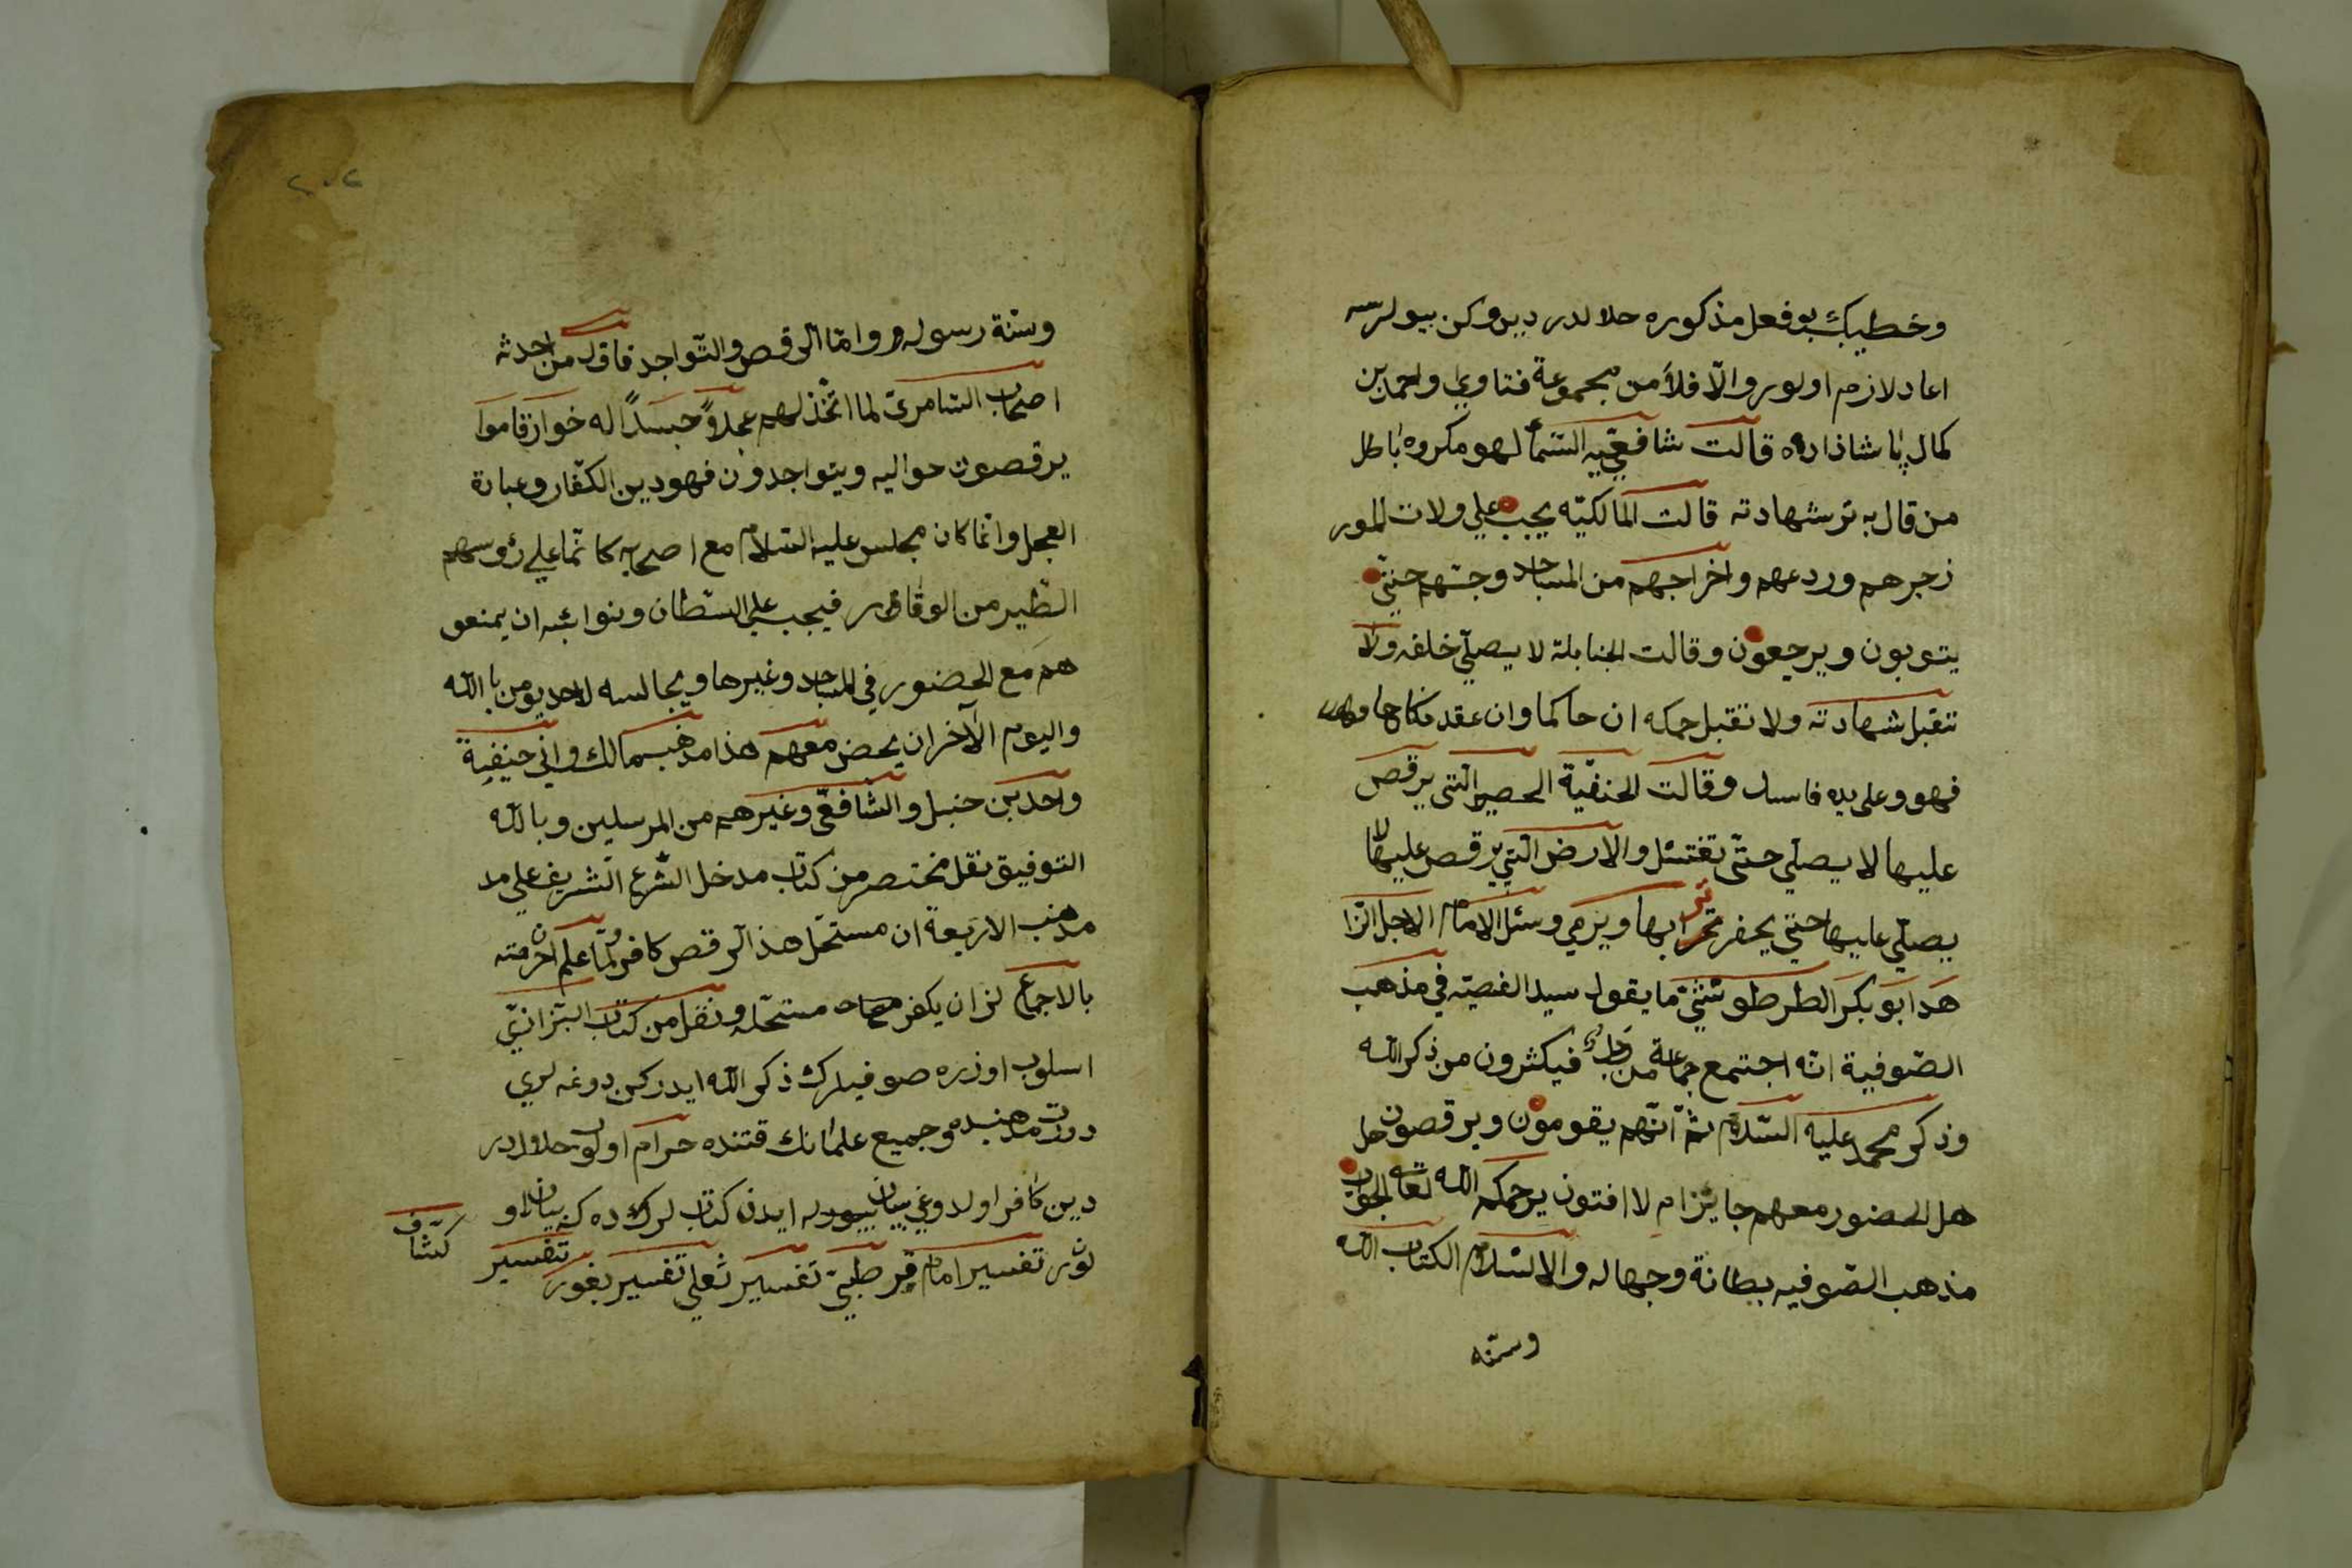 وخطيبك بو فعل مذكوره حلالدر ديين وكن بيولرسه
اعاد لازم اولور والّا فلا من مجموعة فتاوي واحمد بن
كمال پاشا ذاره قالت شافعيّيه السّماٌ لهو مكروه باطل
من قال به ترشهادته قالت المالكيّه يجب علي ولات المور
زجرهم وردعهم واخراجهم من المساجد وجتهم حتيّ
يتوبون ويرجعون وقالت الجنابلة لا يصلّي خلفه ولا
تقبل شهادته ولا تقبل حكمه ان حاكما وان عقد نكاحا
فهو وعلى يده فاسد وقالت الحنفيّة الحصير الّتى يرقص
عليها لا يصلّي حتّى تغتسل والارض الّتي يرقص عليها لا
يصلّي عليها حتيّ يحفر ترابها ويرمي وسئل الامام الاجل الزا
هد ابو بكر الطرطوشيّ ما يقول سيد الفصيّه في مذهب
الصّوفية انّه اجتمع جماعة من رجال فيكثرون من ذكر الله
وذكر محمد عليه السّلام ثمّ انّهم يقومون ويرقصون هل
هل الحضور معهم جايز ام لا افتون يرحمكم الله تعالي الجواب
مذهب الصّوفيه بطانة وجهاله والا السلام الكتاب الله
وسنته
٢٠٢
وسنّة رسوله م وامّا الرقص والتّواجد فاوّل من احدثه
اصحاب السّامريّ لما اتّخذ لهم عجلاً جسدًا له خوار قاموا
يرقصون حواليه ويتواجدون فهو دين الكفّار وعبادة
العجل وانّما كان مجلس عليه السّلام مع اصحابه كانّما علي رؤسهم
الطّير من الوقار فيجب علي السّطان ونوائبه ان يمنعو
هم مع الحضور في المساجد وغيرها ويجالسه لاحد يومن بالله
واليوم الآخر ان يحضر معهم هذا مذهب مالك وابي حنيفية
واحد بن حنبل والشّافعّى وغيرهم من المرسلين وبالله
التوفيق نقل مختصر من كتاب مدخل الشّرع الشّريف علي مد
مذهب الاربعة ان مستحلّ هذا الرقص كافر ولمّا علم ان حرمته
بالاجماع لزان يكفر مستحلّه ونقل من كتاب البزّازيّ
اسلوب اوزره صوفيلرك ذكر الله ايدركن دوغه لري
درت مذهبده وجميع علمانك قتنده حرام اولوب حلالدر
دين كافر اولدوغي بيان ايدن كتاب لرك ده كه بيان او
لنور تفسير امام قرطبيّ تفسير ثعلي تفسير بغور تفسير
كشّاف